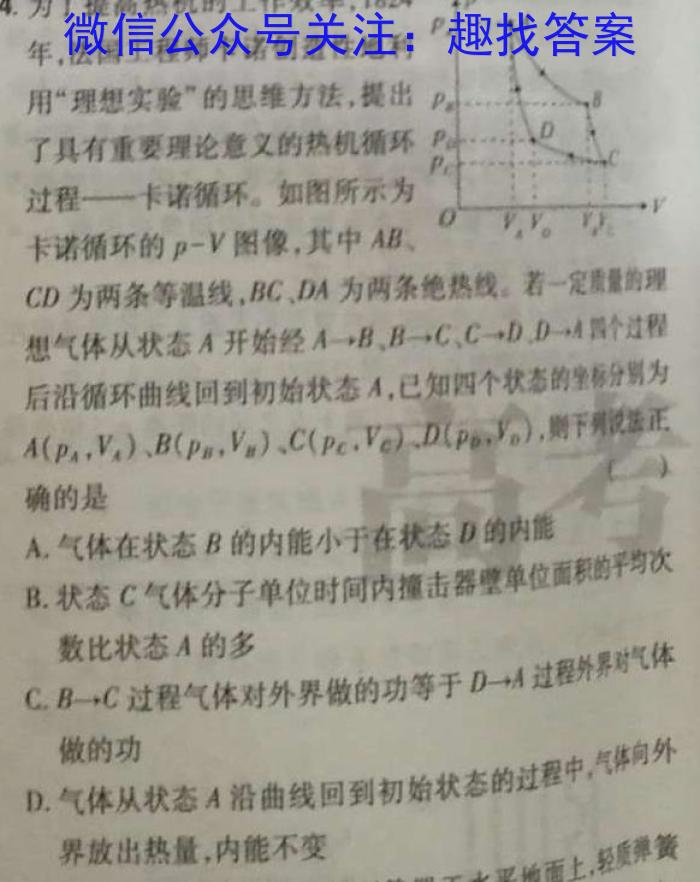 4. 为了提高热机的工作效率,1824
微信公众号关注：趣找答案
年,法国工程师卡诺创造性地利
用“理想实验”的思维方法,提出
了具有重要理论意义的热机循环
过程——卡诺循环。如图所示为
卡诺循环的 p-V 图像,其中 AB、
p
p_B
B
p_D
D
p_C
C
O
V_A V_D
V
CD 为两条等温线,BC、DA 为两条绝热线。若一定质量的理
想气体从状态 A 开始经 A→B、B→C、C→D、D→A 四个过程
后沿循环曲线回到初始状态 A,已知四个状态的坐标分别为
A(p_A,V_A)、B(p_B,V_B)、C(p_C,V_C)、D(p_D,V_D),则下列说法正
确的是
( )
高考
A. 气体在状态 B 的内能小于在状态 D 的内能
B. 状态 C 气体分子单位时间内撞击器壁单位面积的平均次
数比状态 A 的多
C. B→C 过程气体对外界做的功等于 D→A 过程外界对气体
做的功
D. 气体从状态 A 沿曲线回到初始状态的过程中,气体向外
界放出热量,内能不变
水平地面上,轻质弹簧